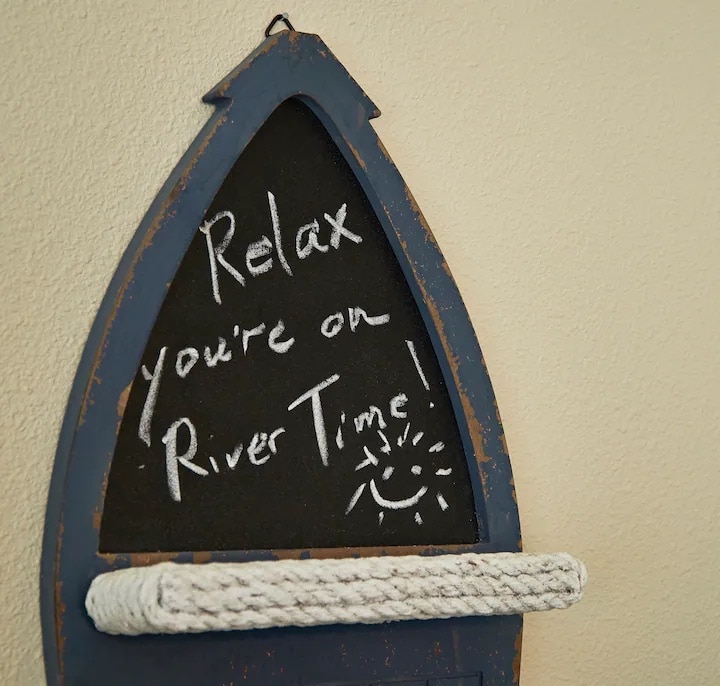 Relax
you're on
River Time!